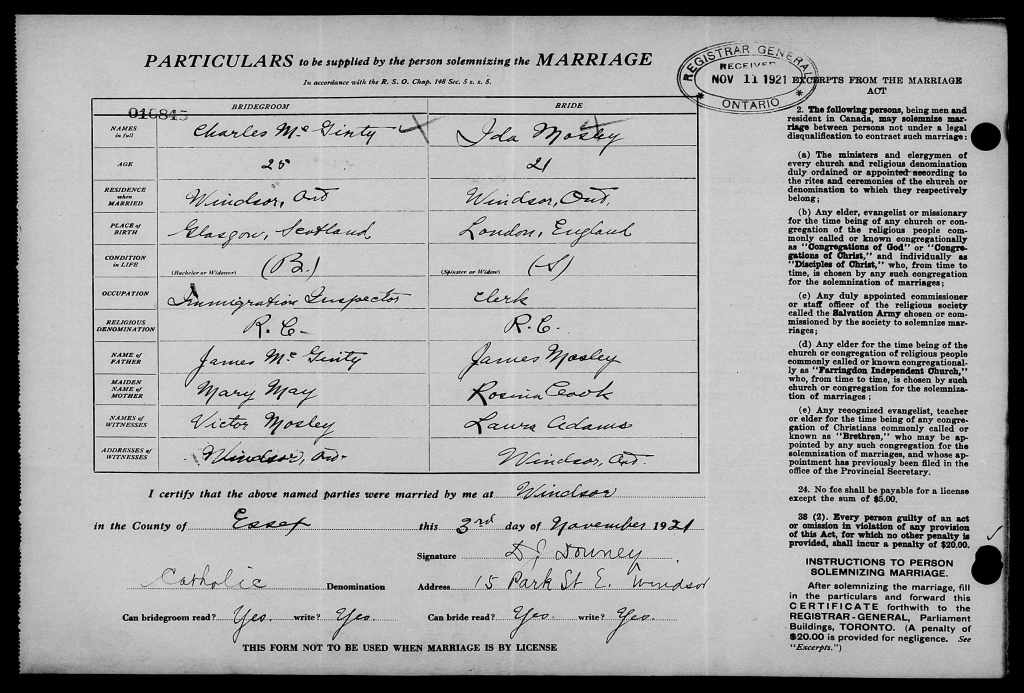 PARTICULARS to be supplied by the person solemnizing the MARRIAGE
In accordance with the R. S. O. Chap. 148 Sec. 5 s. s. 5.
REGISTRAR GENERAL
RECEIVED
NOV 11 1921
ONTARIO
BRIDEGROOM BRIDE
016845
NAMES in full Charles McGinty Ida Mosley
AGE 25 21
RESIDENCE when MARRIED Windsor, Ont Windsor, Ont.
PLACE of BIRTH Glasgow, Scotland London, England
CONDITION in LIFE (Bachelor or Widower) (B.) (Spinster or Widow) (S)
OCCUPATION Immigration Inspector Clerk
RELIGIOUS DENOMINATION R. C. R. C.
NAME of FATHER James McGinty James Mosley
MAIDEN NAME of MOTHER Mary May Rosina Cook
NAMES of WITNESSES Victor Mosley Laura Adams
ADDRESSES of WITNESSES Windsor, Ont. Windsor, Ont.
I certify that the above named parties were married by me at Windsor
in the County of Essex this 3rd day of November 1921
Signature D J Downey
Catholic Denomination Address 15 Park St E. Windsor
Can bridegroom read? Yes. write? Yes. Can bride read? Yes. write? Yes.
THIS FORM NOT TO BE USED WHEN MARRIAGE IS BY LICENSE
EXCERPTS FROM THE MARRIAGE
ACT
2. The following persons, being men and
resident in Canada, may solemnize mar-
riage between persons not under a legal
disqualification to contract such marriage:
(a) The ministers and clergymen of
every church and religious denomination
duly ordained or appointed according to
the rites and ceremonies of the church or
denomination to which they respectively
belong;
(b) Any elder, evangelist or missionary
for the time being of any church or con-
gregation of the religious people com-
monly called or known congregationally
as "Congregations of God" or "Congre-
gations of Christ," and individually as
"Disciples of Christ," who, from time to
time, is chosen by any such congregation
for the solemnization of marriages;
(c) Any duly appointed commissioner
or staff officer of the religious society
called the Salvation Army chosen or com-
missioned by the society to solemnize mar-
riages;
(d) Any elder for the time being of the
church or congregation of religious people
commonly called or known congregational-
ly as "Farringdon Independent Church,"
who, from time to time, is chosen by such
church or congregation for the solemniza-
tion of marriages;
(e) Any recognized evangelist, teacher
or elder for the time being of any congre-
gation of Christians commonly called or
known as "Brethren," who may be ap-
pointed by any such congregation for the
solemnization of marriages, and whose ap-
pointment has previously been filed in the
office of the Provincial Secretary.
24. No fee shall be payable for a license
except the sum of $5.00.
38 (2). Every person guilty of an act
or omission in violation of any provision
of this Act, for which no other penalty is
provided, shall incur a penalty of $20.00.
INSTRUCTIONS TO PERSON
SOLEMNIZING MARRIAGE.
After solemnizing the marriage, fill
in the particulars and forward this
CERTIFICATE forthwith to the
REGISTRAR-GENERAL, Parliament
Buildings, TORONTO. (A penalty of
$20.00 is provided for negligence. See
"Excerpts.")